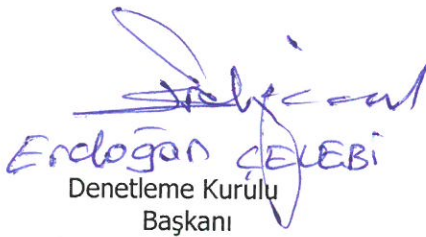 Erdoğan ÇELEBİ
Denetleme Kurulu
Başkanı